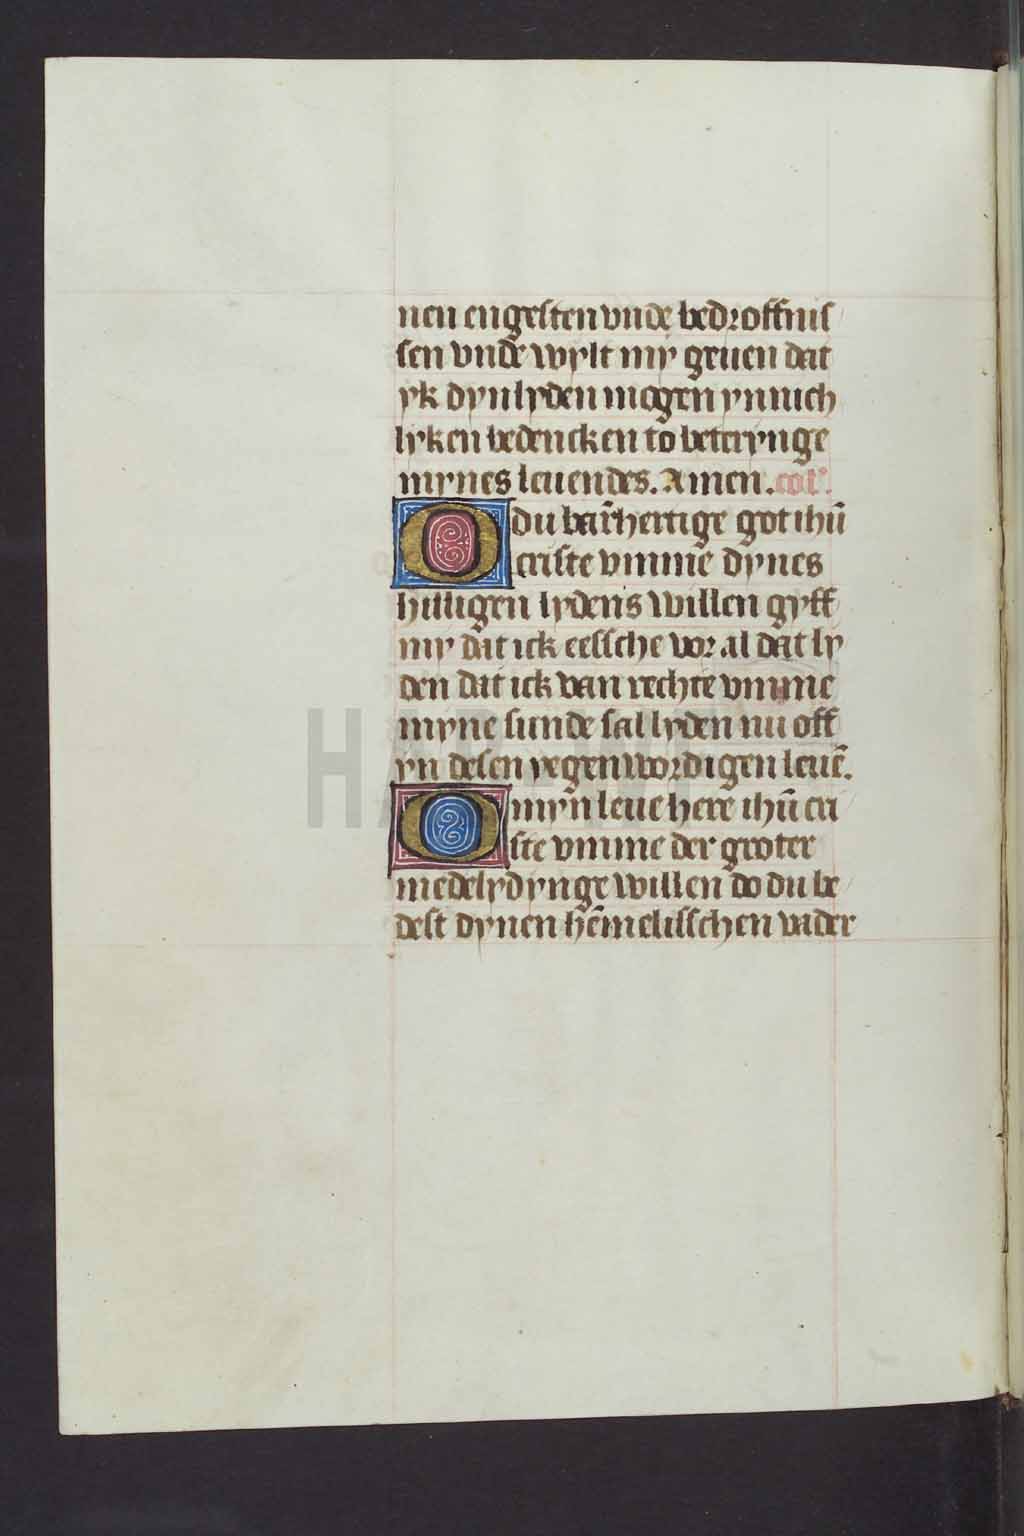 nen engesten vnde bedroffnis
sen vnde wylt my geuen dat
yk dyn lyden mogen ynnich
lyken bedencken to beterynge
mynes leuendes. Amen. col'.
O du barhertige got ihū
criste vmme dynes
hilligen lydens willen gyff
my dat ick eessche vor al dat ly
den dat ick van rechte vmme
myne sunde sal lyden nu off
yn desen yegenwordigen leuē.
O myn leue here ihū cri
ste vmme der groter
medelydynge willen do du be
dest dynen hēmelisschen vader